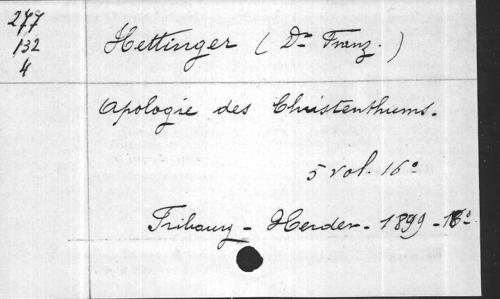 277
132
4
Hettinger (Dr Franz.)
Apologie des Christenthums.
5 vol. 16°
Fribourg - Herder - 1899 - 16°